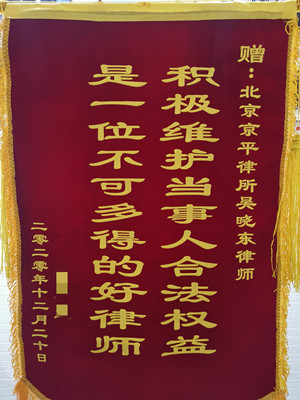 赠：北京京平律所吴晓东律师
积极维护当事人合法权益
是一位不可多得的好律师
二零二零年十二月二十日